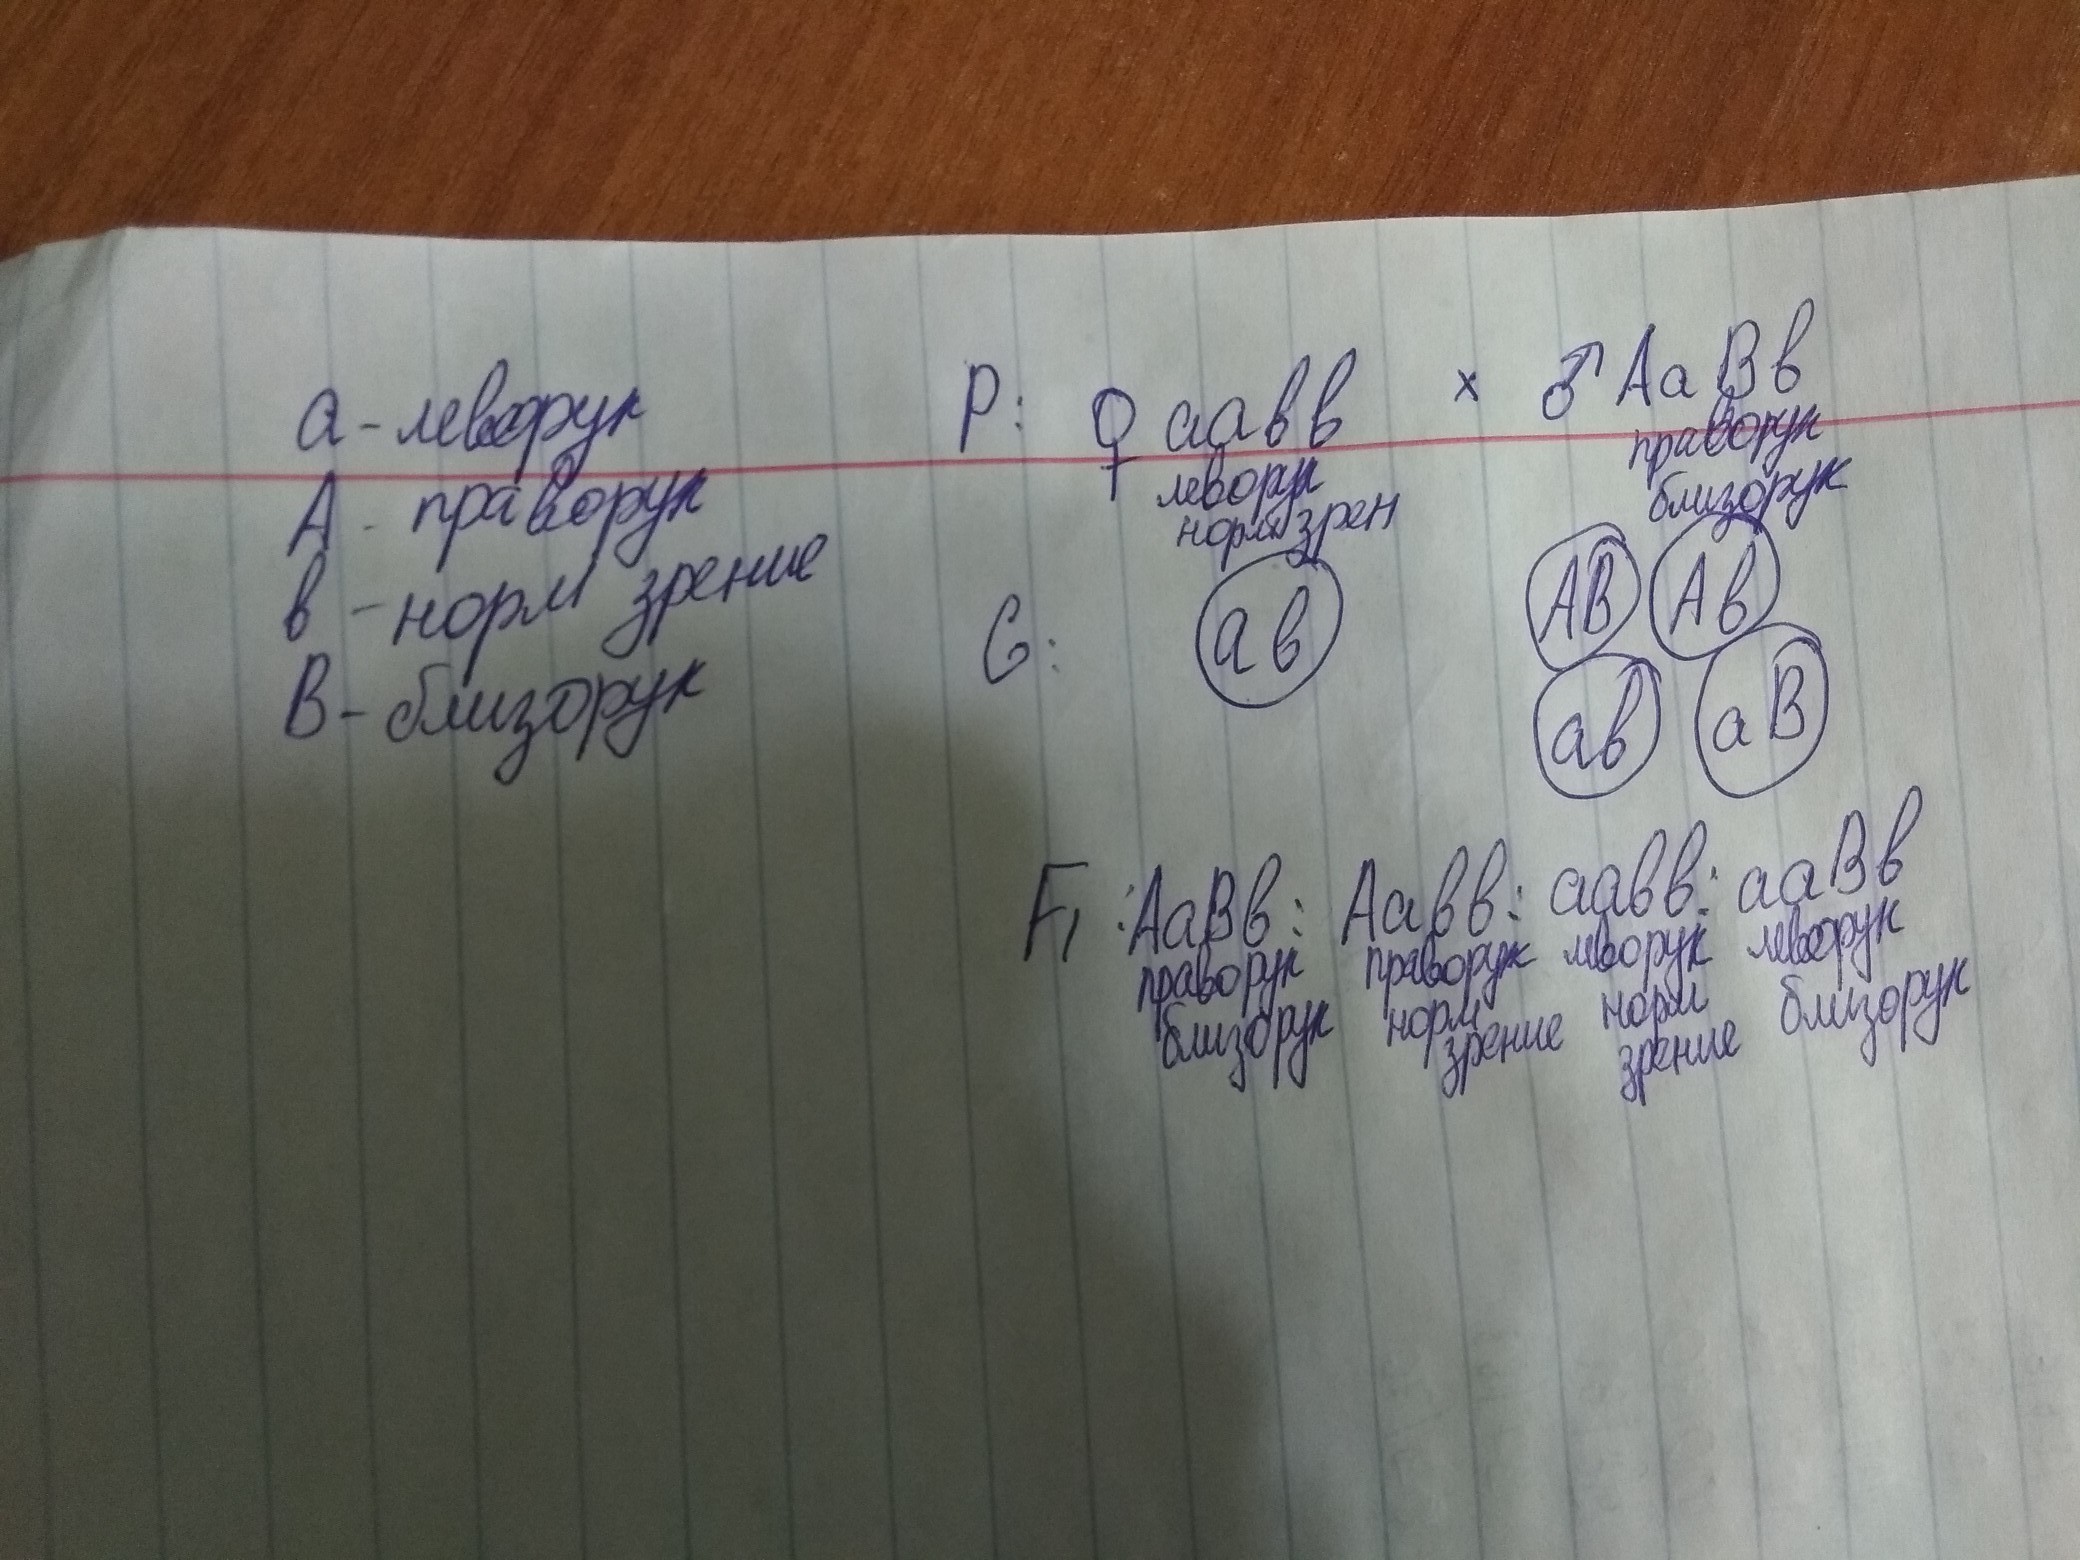 а - леворук
А - праворук
в - норм зрение
В - близорук
P: ♀ аавв × ♂ АаВв
леворук праворук
норм зрен близорук
G: ав АВ Ав
ав аВ
F1: АаВв: Аавв: аавв: ааВв
праворук праворук леворук леворук
близорук норм норм близорук
зрение зрение